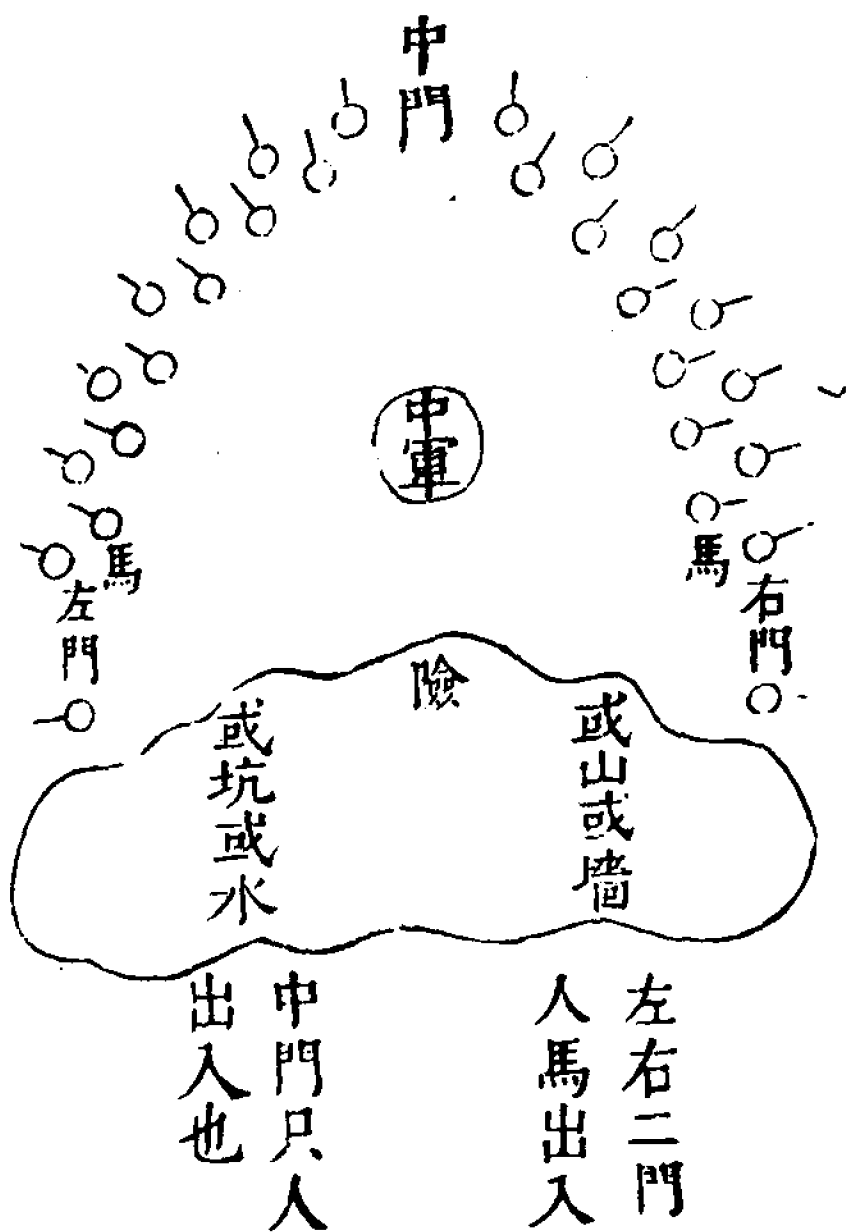 中門
中軍
馬
右門
馬
左門
險
或山或墻
或坑或水
左右二門
人馬出入
中門只人
出入也